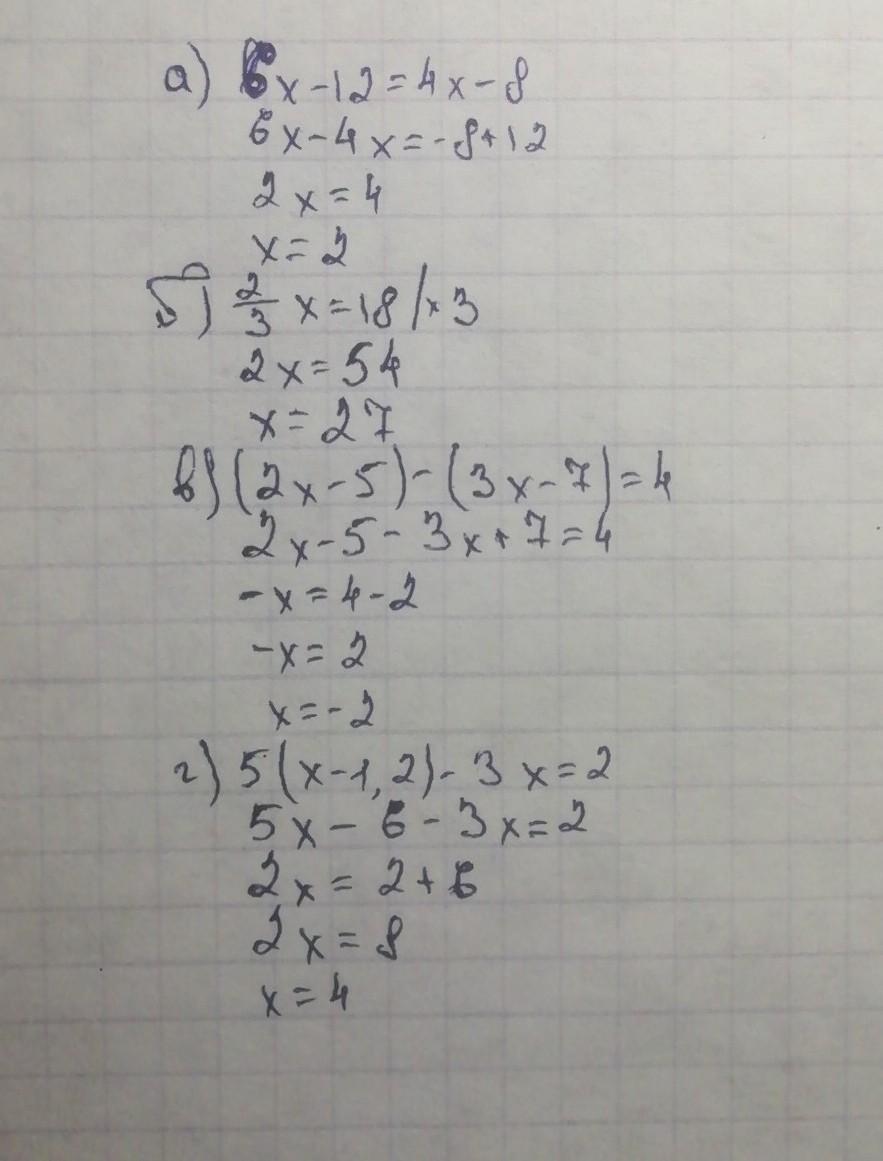 а) 6x-12=4x-8
6x-4x=-8+12
2x=4
x=2
б) 2/3 x=18 |×3
2x=54
x=27
в) (2x-5)-(3x-7)=4
2x-5-3x+7=4
-x=4-2
-x=2
x=-2
г) 5(x-1,2)-3x=2
5x-6-3x=2
2x=2+6
2x=8
x=4